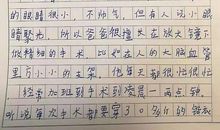 的眼睛很小，不帅气，但有人说小眼
睛聚光，所以爸爸很擅长在放大镜下
做精细的手术，比如在人的大脑血管
里下小小的支架。他每天都很忙很忙
经常加班到手术到凌晨一两点钟。
听说每次手术都要穿30多斤的铅衣